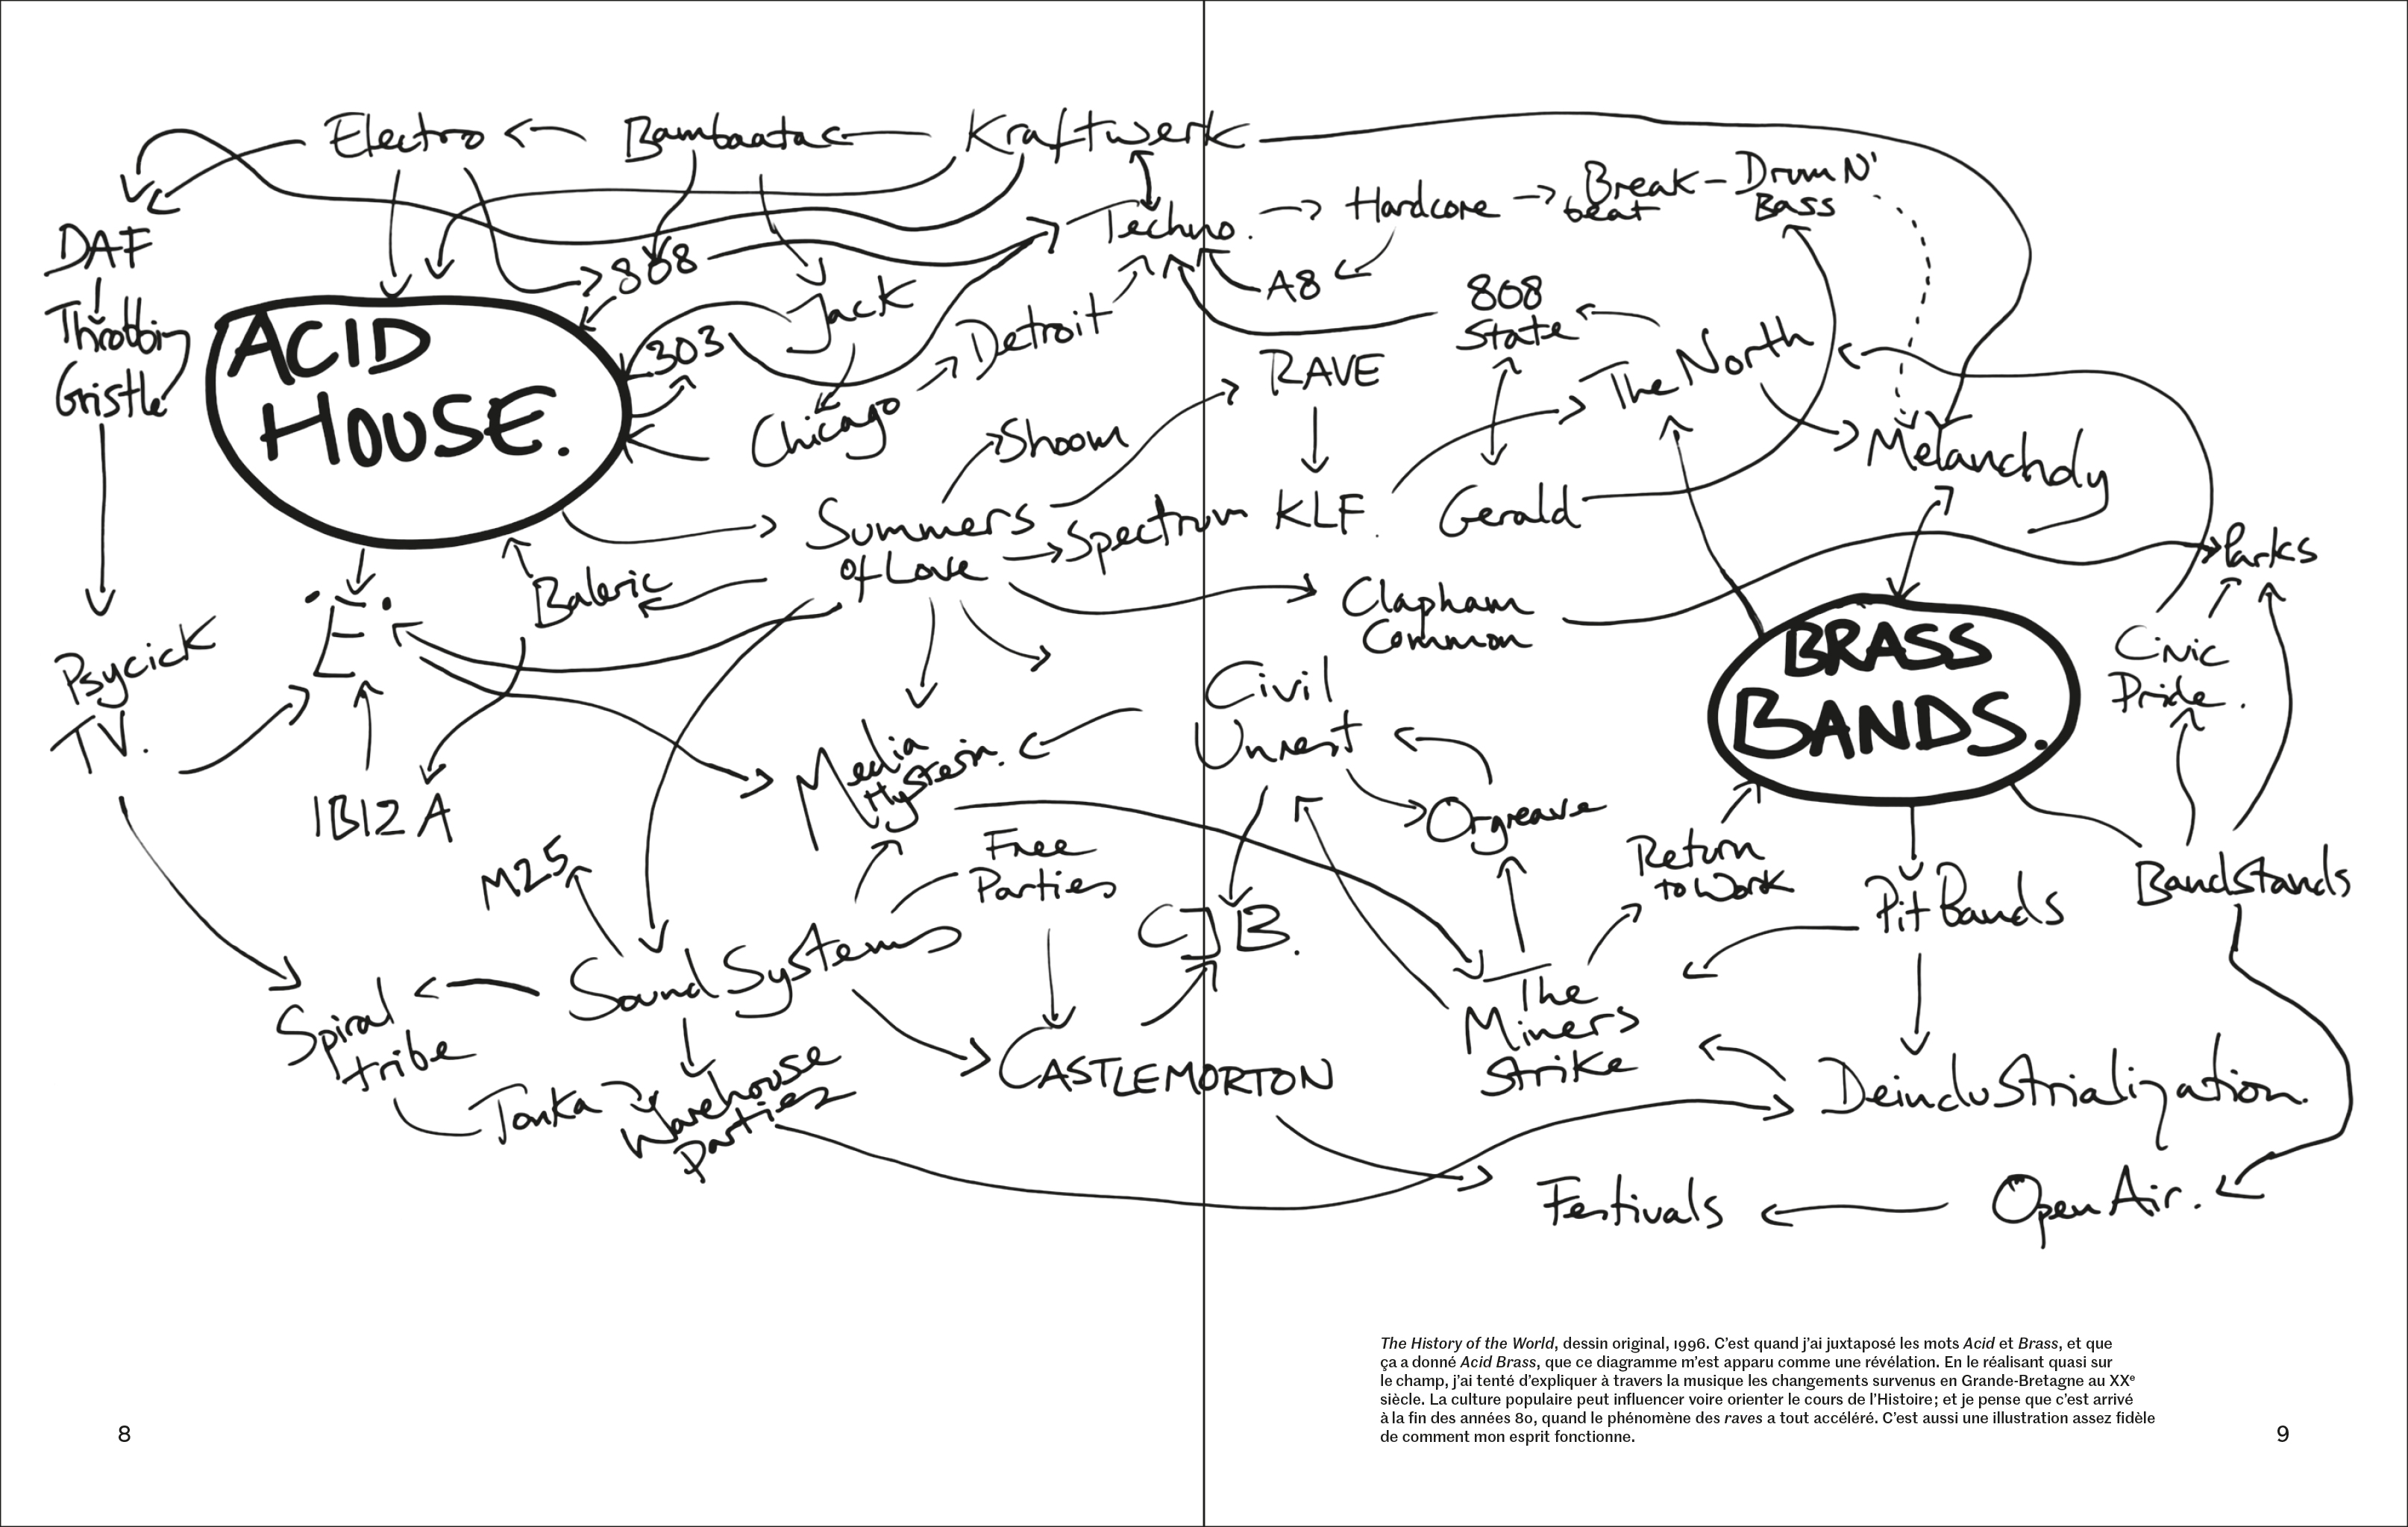 Electro
Bambaata
Kraftwerk
Techno.
Hardcore
Break-
beat
Drum N'
Bass
DAF
Throbbin
Gristle
808
Jack
303
Detroit
A8
808
State
The North
ACID
HOUSE.
Chicago
Shoom
RAVE
Melancholy
Summers
of Love
Spectrum
KLF.
Gerald
Parks
Baleric
Clapham
Common
Ë
BRASS
BANDS.
Civic
Pride.
Psycick
TV.
Civil
Unrest
Media
Hysteria.
1B12A
Orgreave
M25
Free
Parties
Return
to Work
Pit Bands
Bandstands
Sound Systems
CJB.
Spiral
tribe
The
Miners
Strike
Tonka
Warehouse
parties
CASTLEMORTON
Deindustrialization.
Festivals
Open Air.
The History of the World, dessin original, 1996. C’est quand j’ai juxtaposé les mots Acid et Brass, et que
ça a donné Acid Brass, que ce diagramme m’est apparu comme une révélation. En le réalisant quasi sur
le champ, j’ai tenté d’expliquer à travers la musique les changements survenus en Grande-Bretagne au XXe
siècle. La culture populaire peut influencer voire orienter le cours de l’Histoire ; et je pense que c’est arrivé
à la fin des années 80, quand le phénomène des raves a tout accéléré. C’est aussi une illustration assez fidèle
de comment mon esprit fonctionne.
8
9